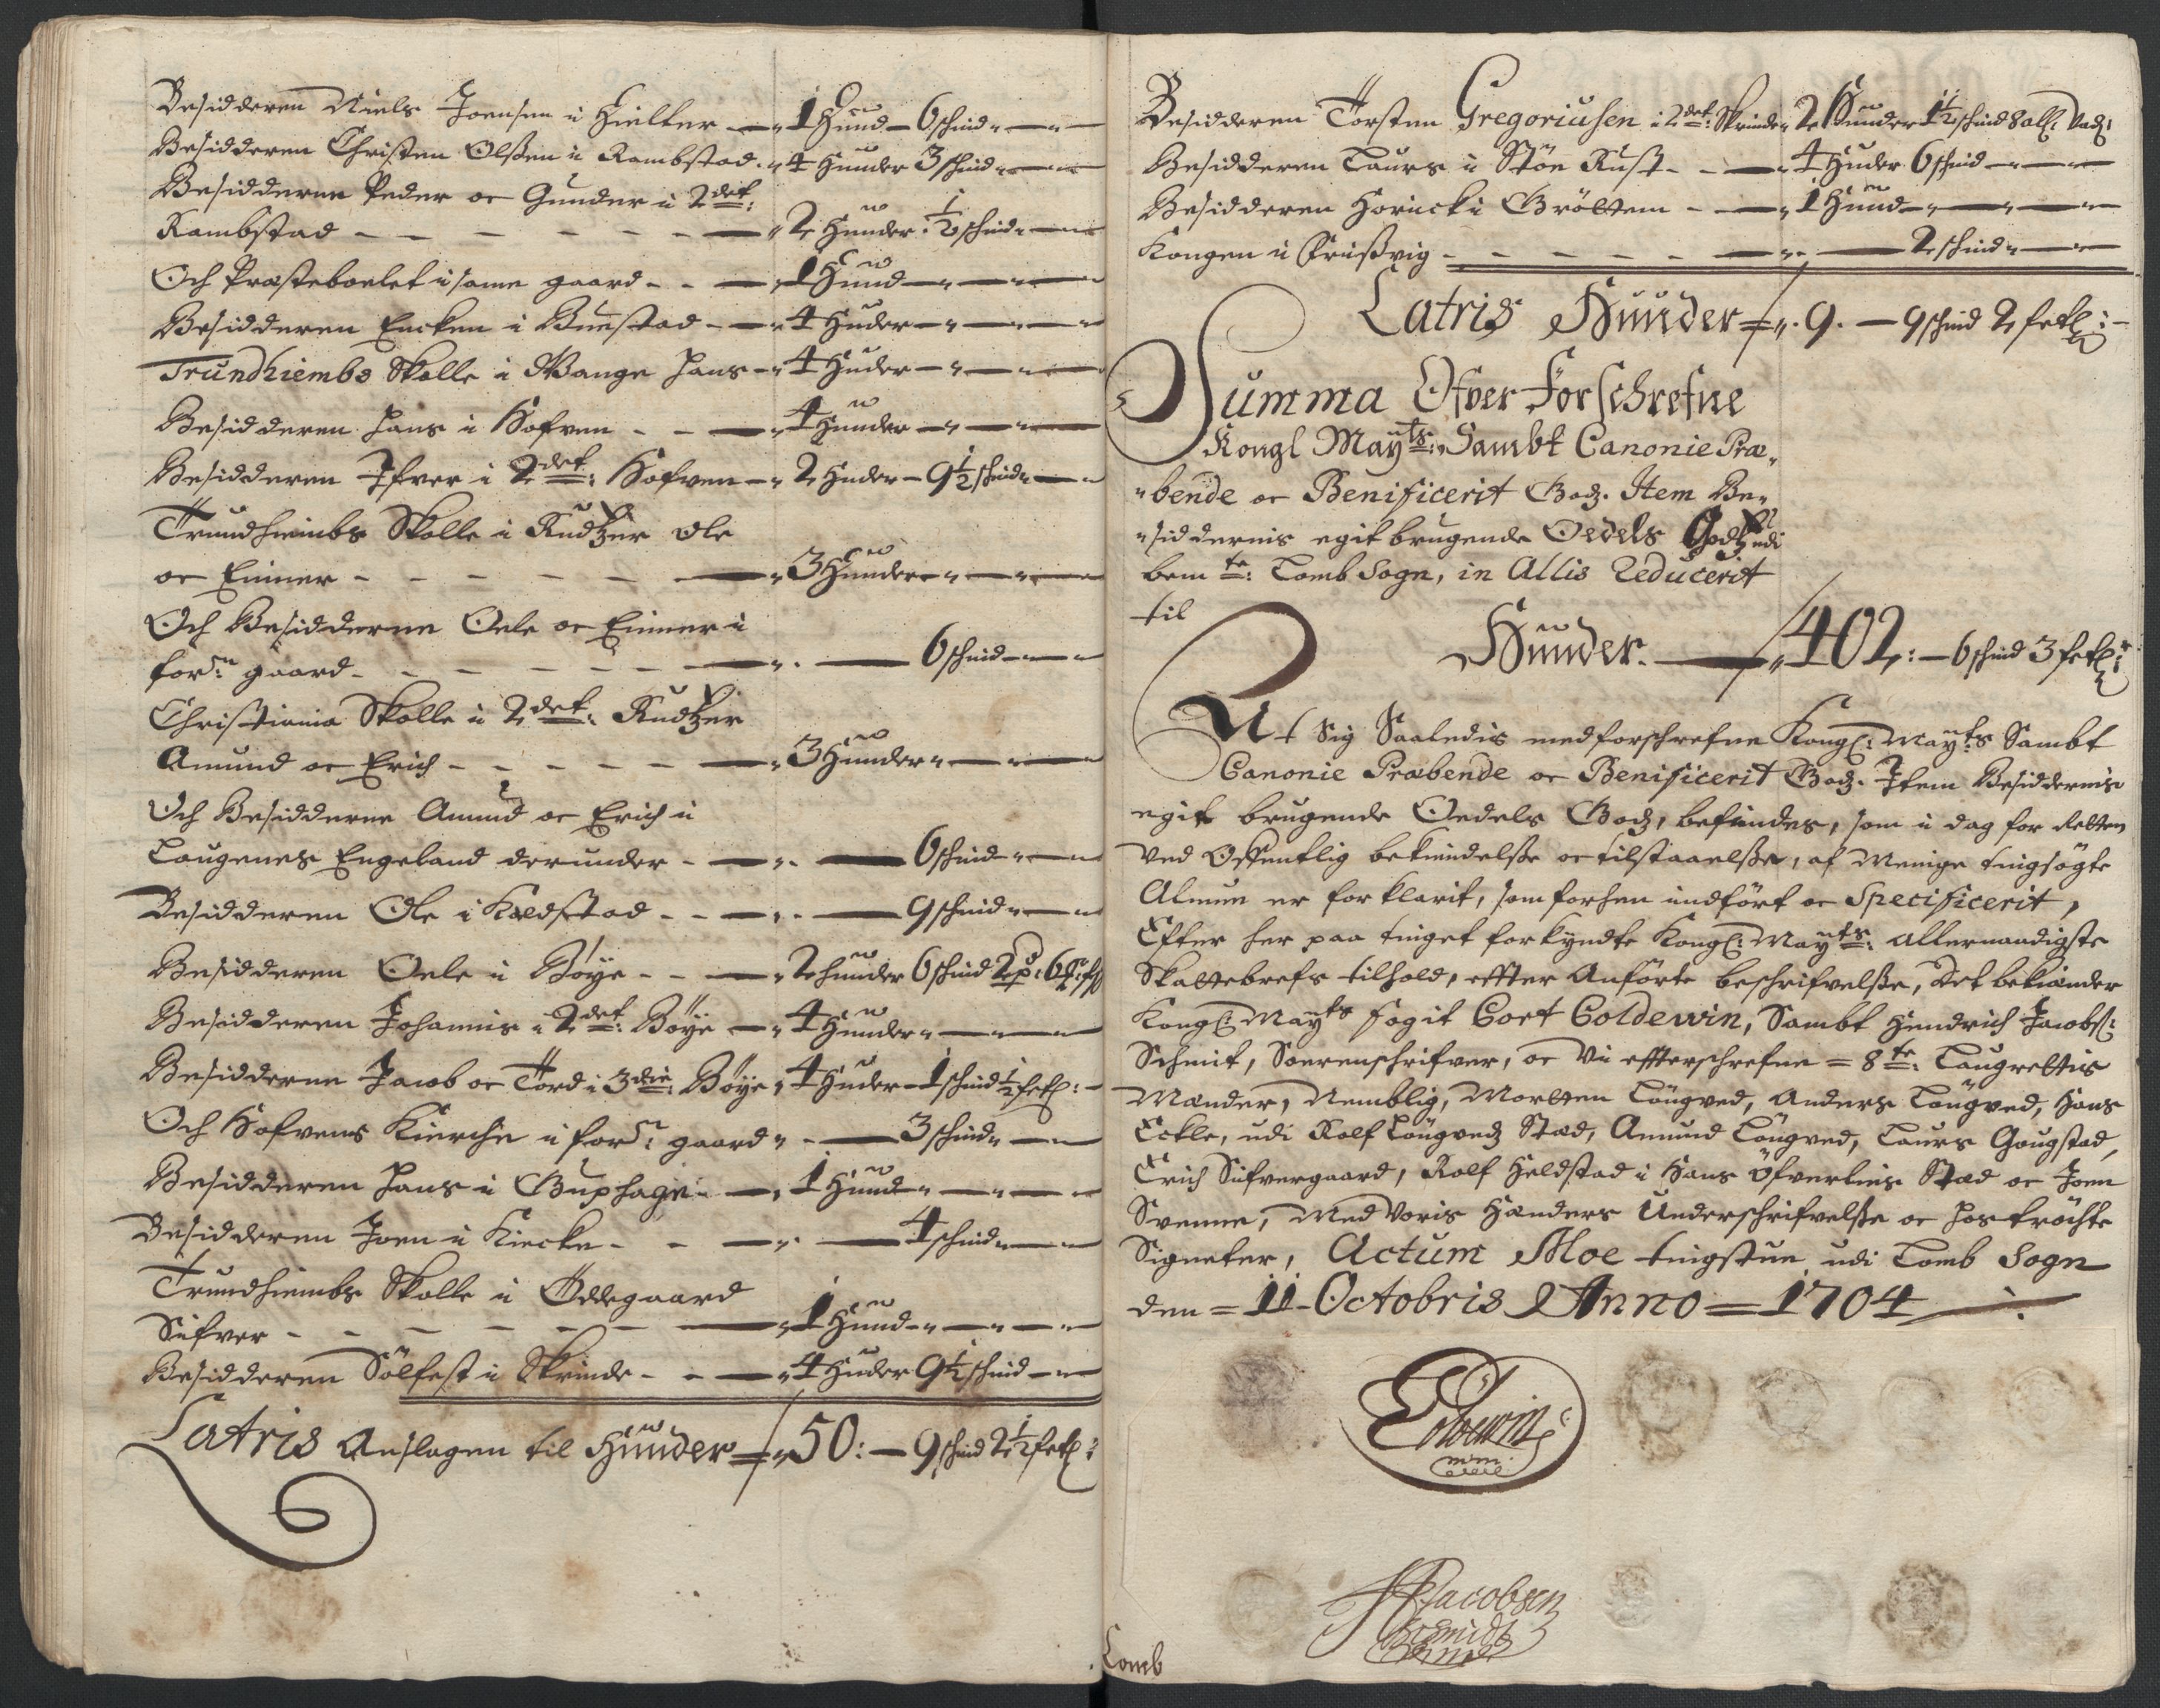 Besidderen Niels Joensen i Hielter — 1 Hund — 6 schind
Besidderen Christen Olßen i Rambstad — 4 Hunder 3 schind
Besidderne Peder oc Gunder i 2det:
Rambstad — 2 Hunder ½ schind
Och Præsteboelet i same gaard — 1 Hund
Besidderen Encken i Buestad — 4 Huder
Trundhiembs Skolle i Wange Hans — 4 Huder
Besidderen Hans i Hofven — 4 Hunder
Besidderen Ifver i 2det: Hofven — 2 Huder — 9½ schind
Trundhiembs Skolle i Rudtzer Ole
oc Einner — 3 Hunder
Och Besidderne Oele oc Einner i
forne: gaard — 6 schind
Christiania Skolle i 2det: Rudtzer
Amund oc Erich — 3 Hunder
Och Besidderne Amund oc Erich i
Laugenes Engeland derunder — 6 schind
Besidderen Ole i Kældstad — 9 schind
Besidderen Oele i Böye — 2 hunder 6 schind
Besidderen Johannis i 2det: Böye — 4 Hunder
Besidderne Jacob oc Tord i 3die: Böye 4 Huder — 1 schind ½ fetl:
Och Hofvens Kierche i forne: gaard — 3 schind
Besidderen Hans i Gruphage — 1 Hund
Besidderen Joen i Kircke — 4 schind
Trundhiembs Skolle i Ödegaard
Sifver — 1 Hund
Besidderen Sölfest i Skrinde — 4 Huder 9½ schind
Latris Anslagen til Hunder 50: — 9 schind 2½ fetl:
Besidderen Torsten Gregoriusen i 2det: Skrinde 2 Hunder 1½ schind
Besidderen Laurs i Stöe Rust — 4 Huder 6 schind
Besidderen Horick i Gröttem — 1 Hund
Kongen i Früßvig — 2 schind
Latris Hunder 9. — 9 schind 2 fetl:
Summa Ofver Forschrefne
Kongl Mayts: Sambt Canonie Præ-
bende oc Benificerit Godz. Item Be-
siddernis egit brugende Oedels Godtz udi
bemte: Lomb Sogn, in Allis Reducerit
til
Hunder. — 402: — 6 schind 3 fetl:
At Sig Saaledis med forschrefne Kongl: Mayts Sambt
Canonie Præbende oc Benificerit Godz. Item Besiddernis
egit brugende Oedels Godz, befindes, som i dag for Retten
ved Offentlig bekiendelße oc tilstaaelße, af Menige tingsögte
Almue er forklarit, som forhen indfört oc Specificerit,
Efter her paa tinget forkyndte Kongl: Mayts: allernaadigste
Skattebrefs tilhold, effter Anförte beschrifvelße, det bekiender
Kongl: Mayts fogit Cort Coldewin, Sambt Hendrich Jacobs:
Schmit, Sorenschrifver, oc Vii effterschrefne = 8te: Laugrettis
Mænder, Nemblig, Morten Löngved, Anders Löngved, Hans
Eckle, udi Rolf Löngvedz Sted, Amund Löngved, Laurs Gougstad,
Erich Sifvergaard, Rolf Heldstad i Hans Öfverlins Sted oc Joen
Svenne, Med Voris Hænders Underschrifvelße oc hoströchte
Signeter, Actum Moe tingstue udi Lomb Sogn
den = 11 Octobris Anno = 1704
Coldewin
mm:
HJacobsen
Schmidt
Lomb